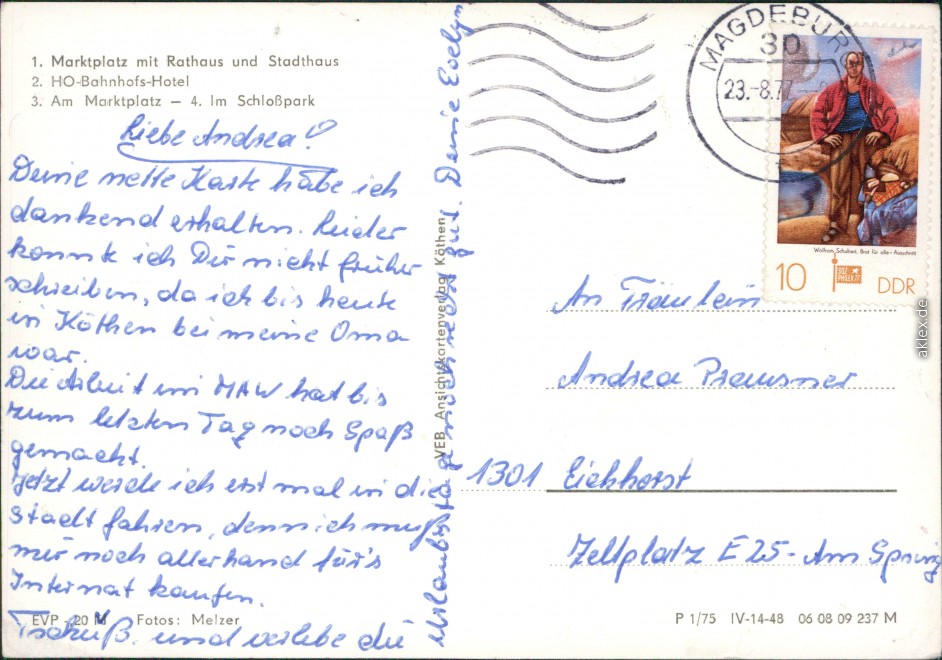 1. Marktplatz mit Rathaus und Stadthaus
2. HO-Bahnhofs-Hotel
3. Am Marktplatz – 4. Im Schloßpark
Liebe Andrea!
Deine nette Karte habe ich
dankend erhalten. Leider
konnte ich Dir nicht früher
schreiben, da ich bis heute
in Köthen bei meine Oma
war.
Die Arbeit im MAW hat bis
zum letzten Tag noch Spaß
gemacht.
Jetzt werde ich erst mal in die
Stadt fahren, denn ich muß
mir noch allerhand für's
Internat kaufen.
Tschüß und verlebe die
Urlaubstage noch recht gut. Deine Evelyn
EVP -20 M Fotos: Melzer
VEB Ansichtskartenverlag Köthen
MAGDEBURG
30
23.-8.77
Wolfram Schubert, Brot für alle - Ausschnitt
10
SOZ
PHILEX 77
DDR
An Fräulein
Andrea Preusner
1301 Eichhorst
Zeltplatz E25 - Am Sprung
P 1/75 IV-14-48 06 08 09 237 M
aklex.de